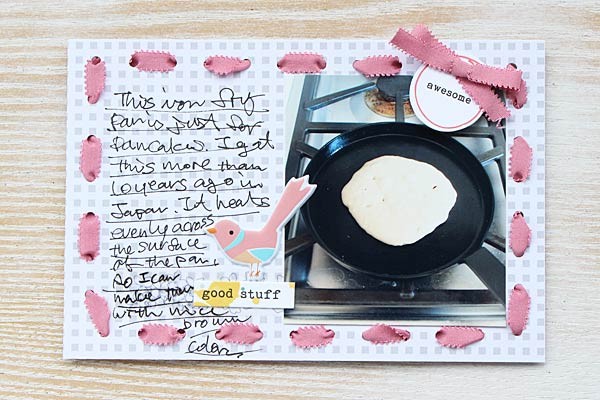 This iron fry
pan is just for
pancakes. I got
this more than
10 years ago in
Japan. It heats
evenly across
the surface
of the pan.
So I can
make them
with nice
brown
color.
good stuff
awesome